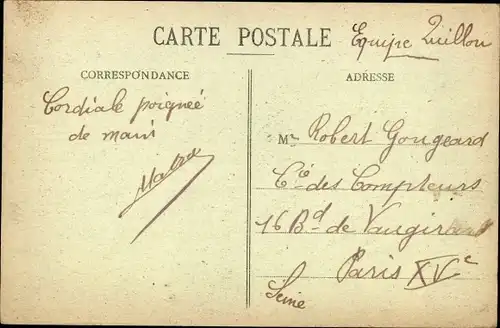 CARTE POSTALE
Equipe Quillou
CORRESPONDANCE
Cordiale poigneé
de main
ADRESSE
Mr Robert Gougeard
Cie des Compteurs
16 Bd de Vaugirard
Paris XVe
Seine